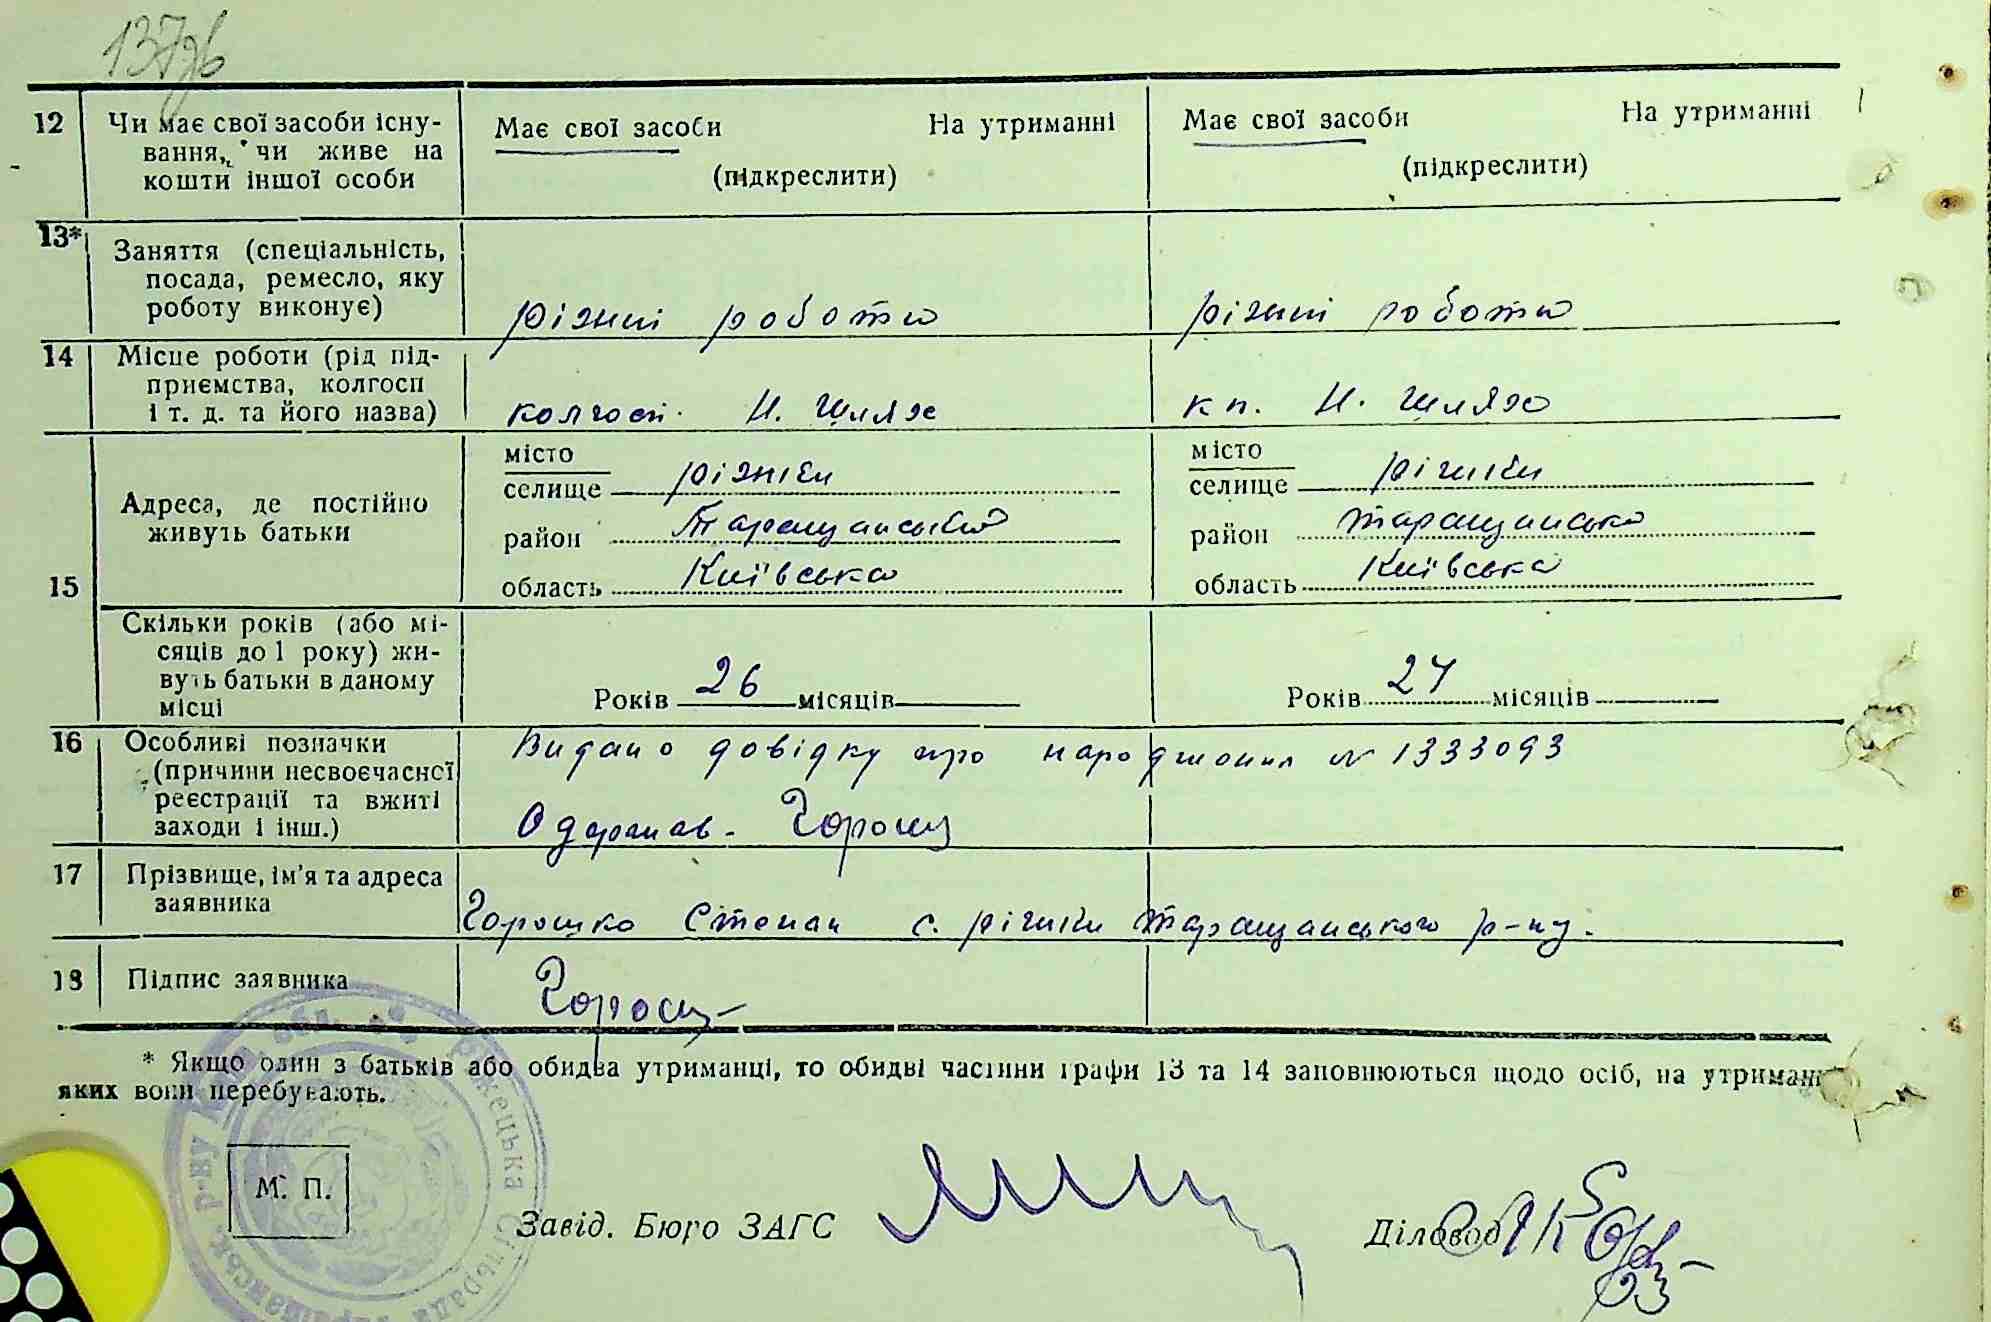 137зв
12 Чи має свої засоби існу- Має свої засоби На утриманні Має свої засоби На утриманні
вання, чи живе на
кошти іншої особи (підкреслити) (підкреслити)
13* Заняття (спеціальність,
посада, ремесло, яку
роботу виконує) різні роботи різні роботи
14 Місце роботи (рід під-
приємства, колгосп
і т. д. та його назва) колгосп. Н. Шлях кп. Н. Шлях
15 Адреса, де постійно
живуть батьки
місто
селище Ріжки
район Таращанський
область Київська
місто
селище Ріжки
район Таращанське
область Київська
Скільки років (або мі-
сяців до 1 року) жи-
вуть батьки в даному
місці Років 26 місяців Років 24 місяців
16 Особливі позначки Видано довідку про народження № 1333093
(причини несвоєчасної
реєстрації та вжиті Одержав. Горош
заходи і інш.)
17 Прізвище, ім'я та адреса
заявника Горошко Степан с. Ріжки Таращанського р-ну.
18 Підпис заявника Горош
* Якщо один з батьків або обидва утриманці, то обидві частини графи 13 та 14 заповнюються щодо осіб, на утриманні
яких вони перебувають.
М. П.
Завід. Бюро ЗАГС Діловод